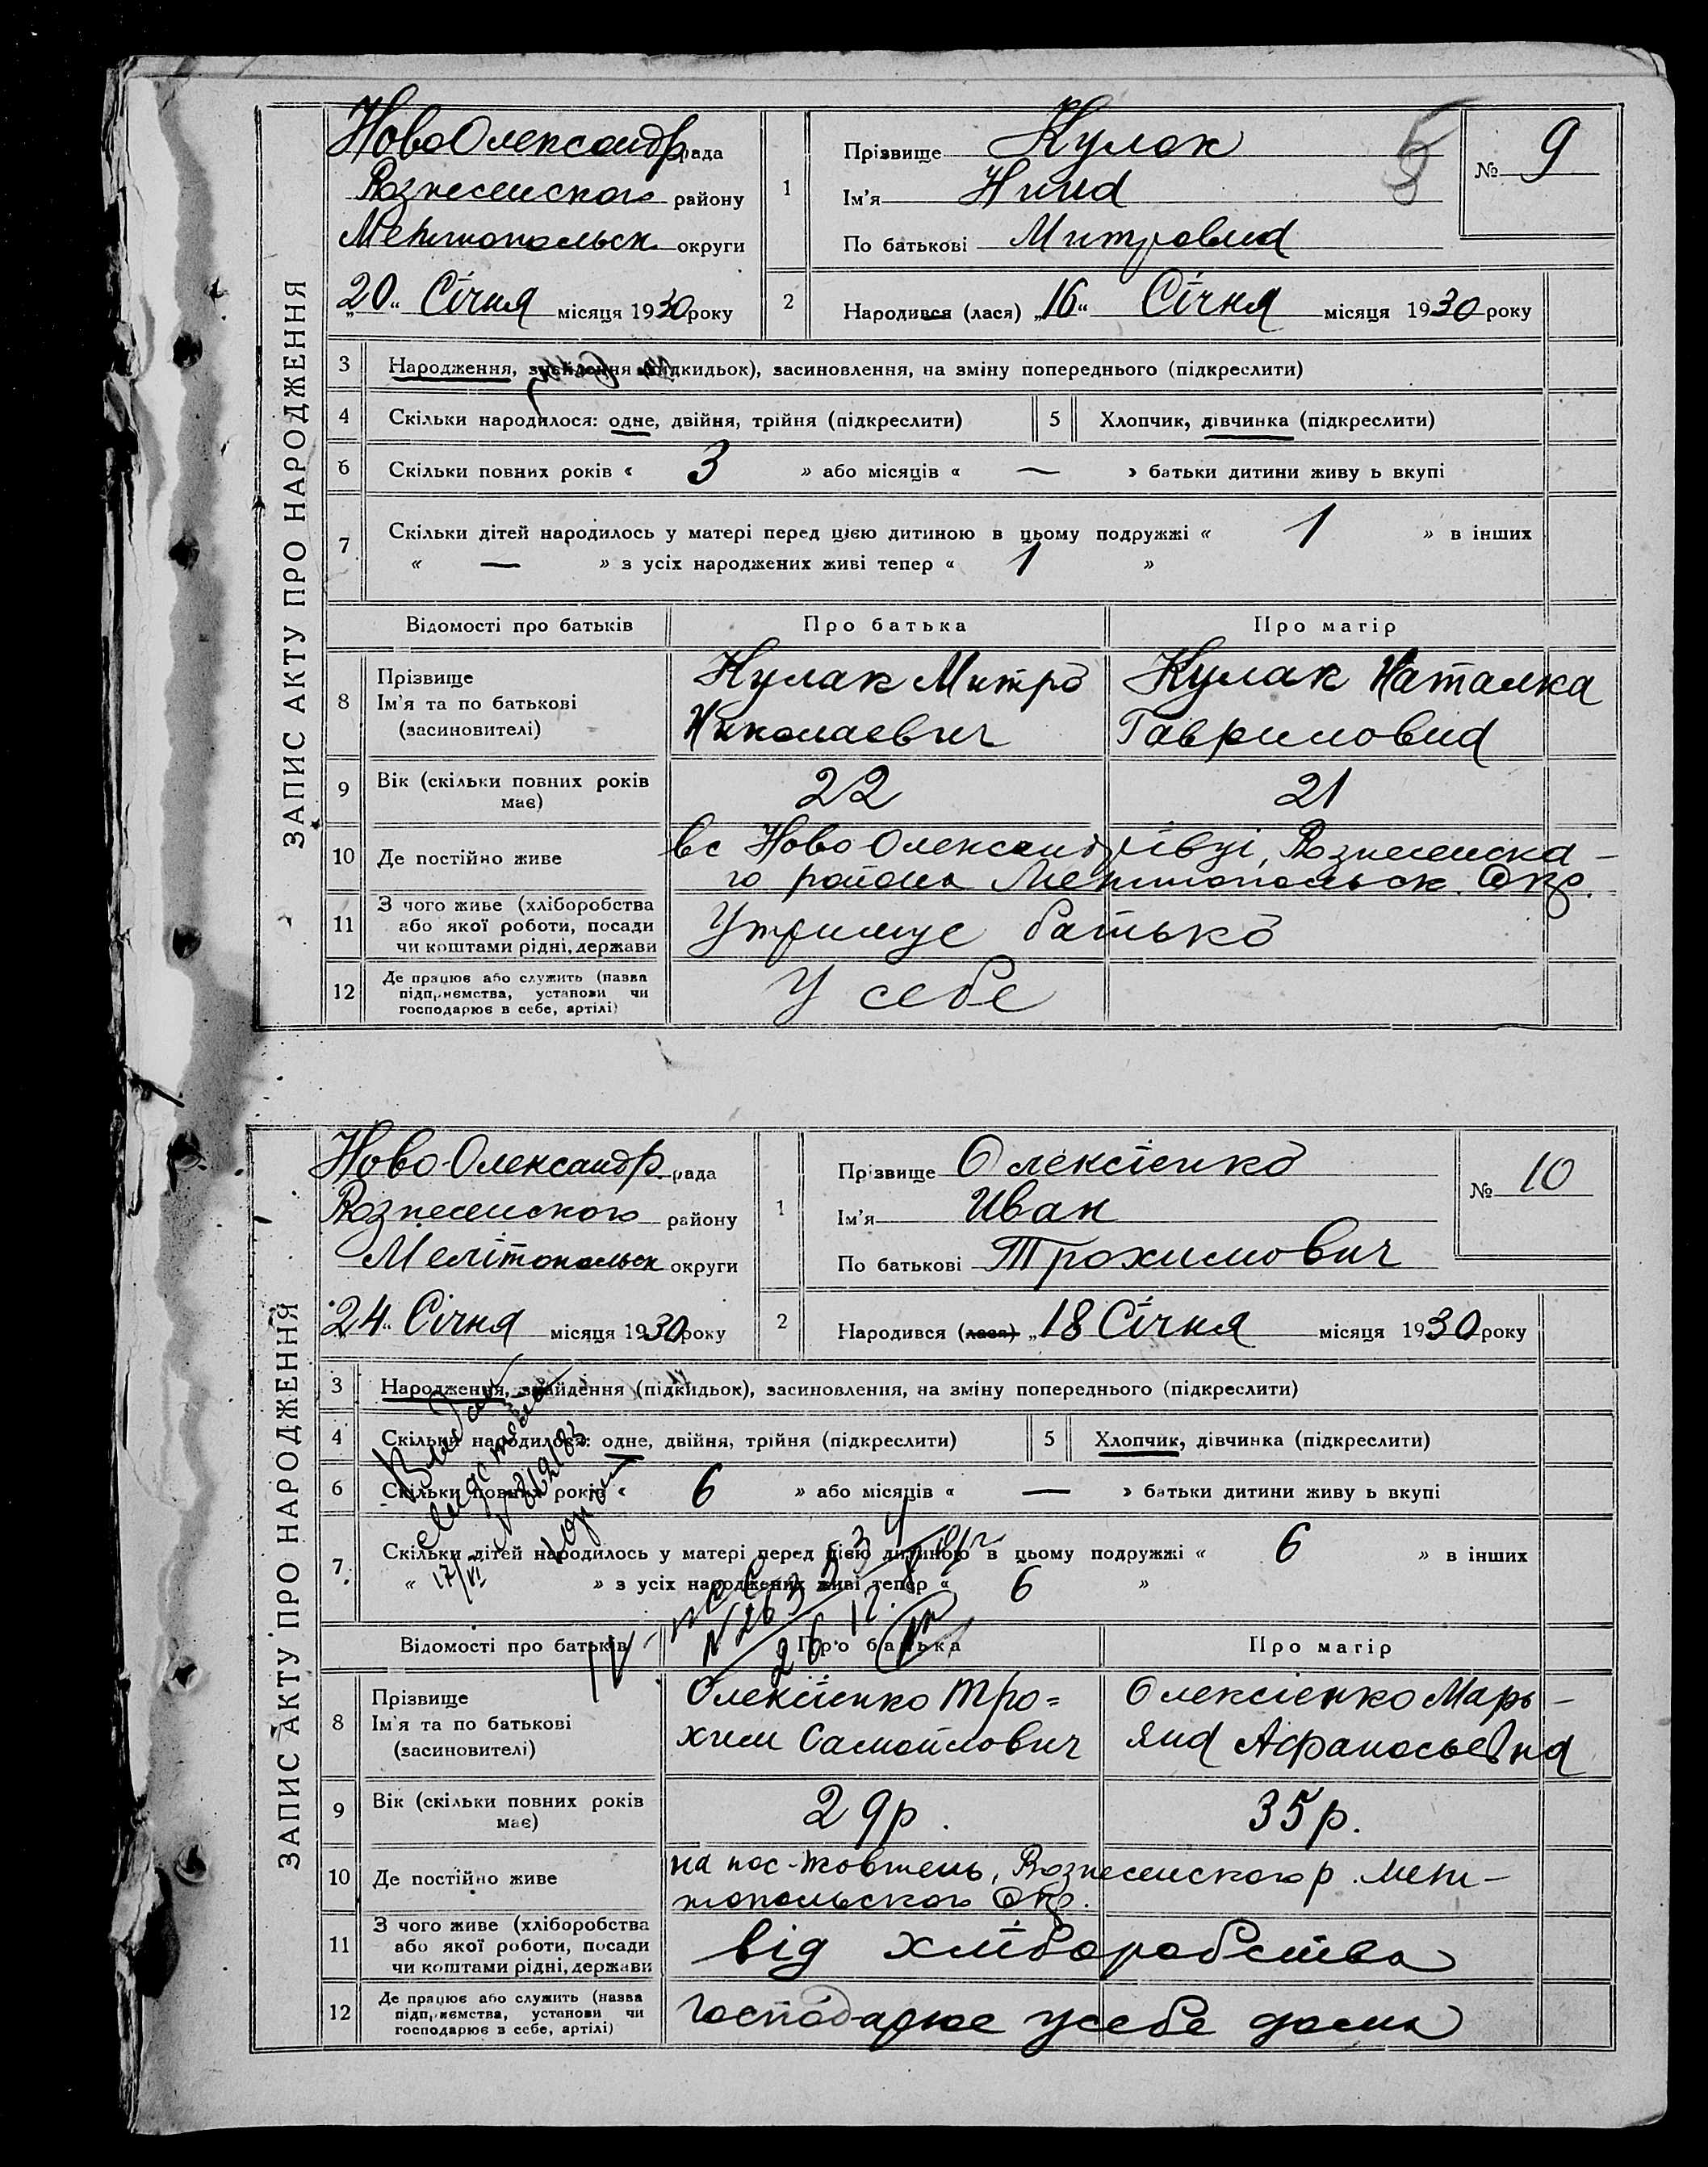 ЗАПИС АКТУ ПРО НАРОДЖЕННЯ
НовоОлександр рада
Вознесенского району
Мелітопольск округи
„20“ Січня місяця 1930 року
1 Прізвище Кулак
Ім'я Нина
По батькові Митровна
№ 9
2 Народився (лася) „16“ Січня місяця 1930 року
3 Народження, знайдення (підкидьок), засиновлення, на зміну попереднього (підкреслити)
4 Скільки народилося: одне, двійня, трійня (підкреслити) 5 Хлопчик, дівчинка (підкреслити)
6 Скільки повних років « 3 » або місяців « — » батьки дитини живу ь вкупі
7 Скільки дітей народилось у матері перед цією дитиною в цьому подружжі « 1 » в інших
« — » з усіх народжених живі тепер « 1 »
Відомості про батьків Про батька Про матір
8 Прізвище Ім'я та по батькові (засновителі) Кулак Митро Николаевич Кулак Наталка Гавриловна
9 Вік (скільки повних років має) 22 21
10 Де постійно живе вс НовоОлександрівці, Вознесенска-
го района Мелитопольск. Окр.
11 З чого живе (хліборобства або якої роботи, посади чи коштами рідні, держави Утримує батько
12 Де працює або служить (назва підприємства, установи чи господарює в себе, артілі) У себе
ЗАПИС АКТУ ПРО НАРОДЖЕННЯ
Ново-Олександр. рада
Вознесенского району
Мелітопольск округи
„24“ Січня місяця 1930 року
1 Прізвище Олексієнко
Ім'я Иван
По батькові Трохимович
№ 10
2 Народився (лася) „18 Січня місяця 1930 року
3 Народження, знайдення (підкидьок), засиновлення, на зміну попереднього (підкреслити)
4 Скільки народилося: одне, двійня, трійня (підкреслити) 5 Хлопчик, дівчинка (підкреслити)
6 Скільки повних років « 6 » або місяців « — » батьки дитини живу ь вкупі
7 Скільки дітей народилось у матері перед цією дитиною в цьому подружжі « 6 » в інших
« » з усіх народжених живі тепер « 6 »
Відомості про батьків Про батька Про матір
8 Прізвище Ім'я та по батькові (засиновителі) Олексієнко Тро=
хим Самойлович Олексієнко Марь-
яна Афанасьевна
9 Вік (скільки повних років має) 29р. 35р.
10 Де постійно живе на пос-Жовтень, Вознесенского р. Мели-
топольского Окр.
11 З чого живе (хліборобства або якої роботи, посади чи коштами рідні, держави від хліборобства
12 Де працює або служить (назва підприємства, установи чи господарює в себе, артілі) господарює усебе дома